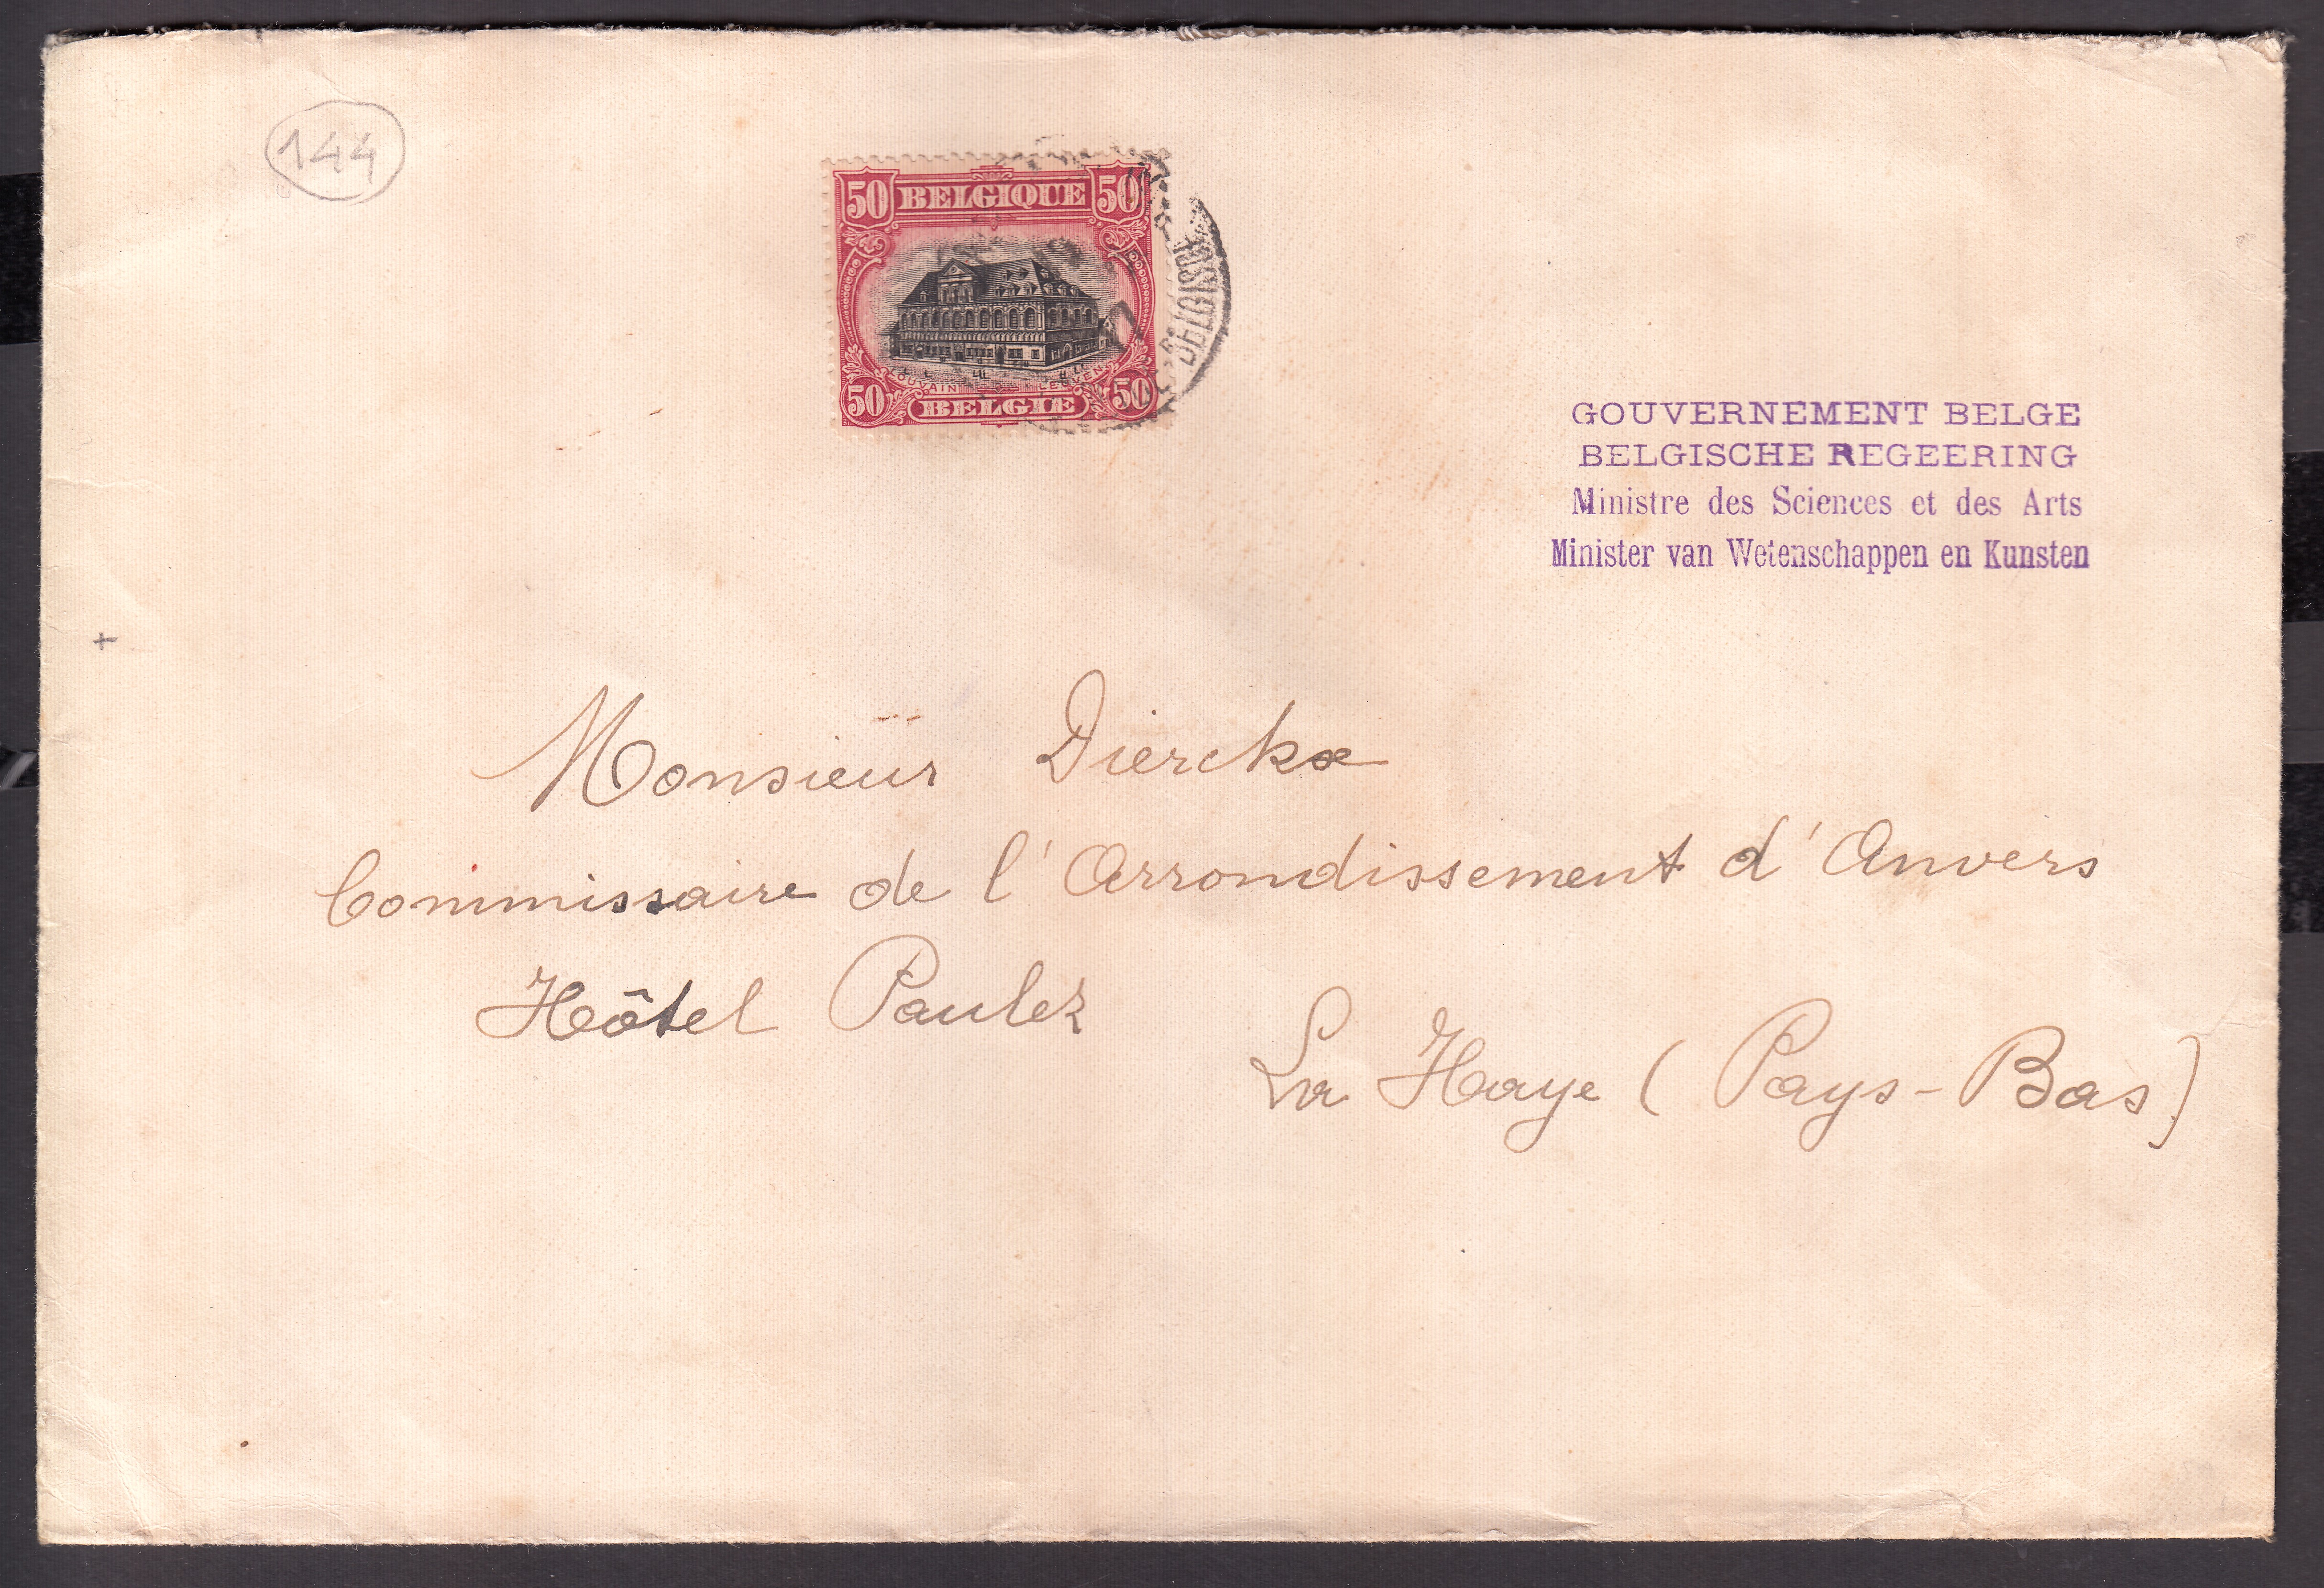 144
50 BELGIQUE 50
LOUVAIN LEUVEN
50 BELGIE 50
BELGISCH
GOUVERNEMENT BELGE
BELGISCHE REGEERING
Ministre des Sciences et des Arts
Minister van Wetenschappen en Kunsten
Monsieur Dierckx
Commissaire de l'Arrondissement d'Anvers
Hôtel Paulez
La Haye (Pays-Bas)